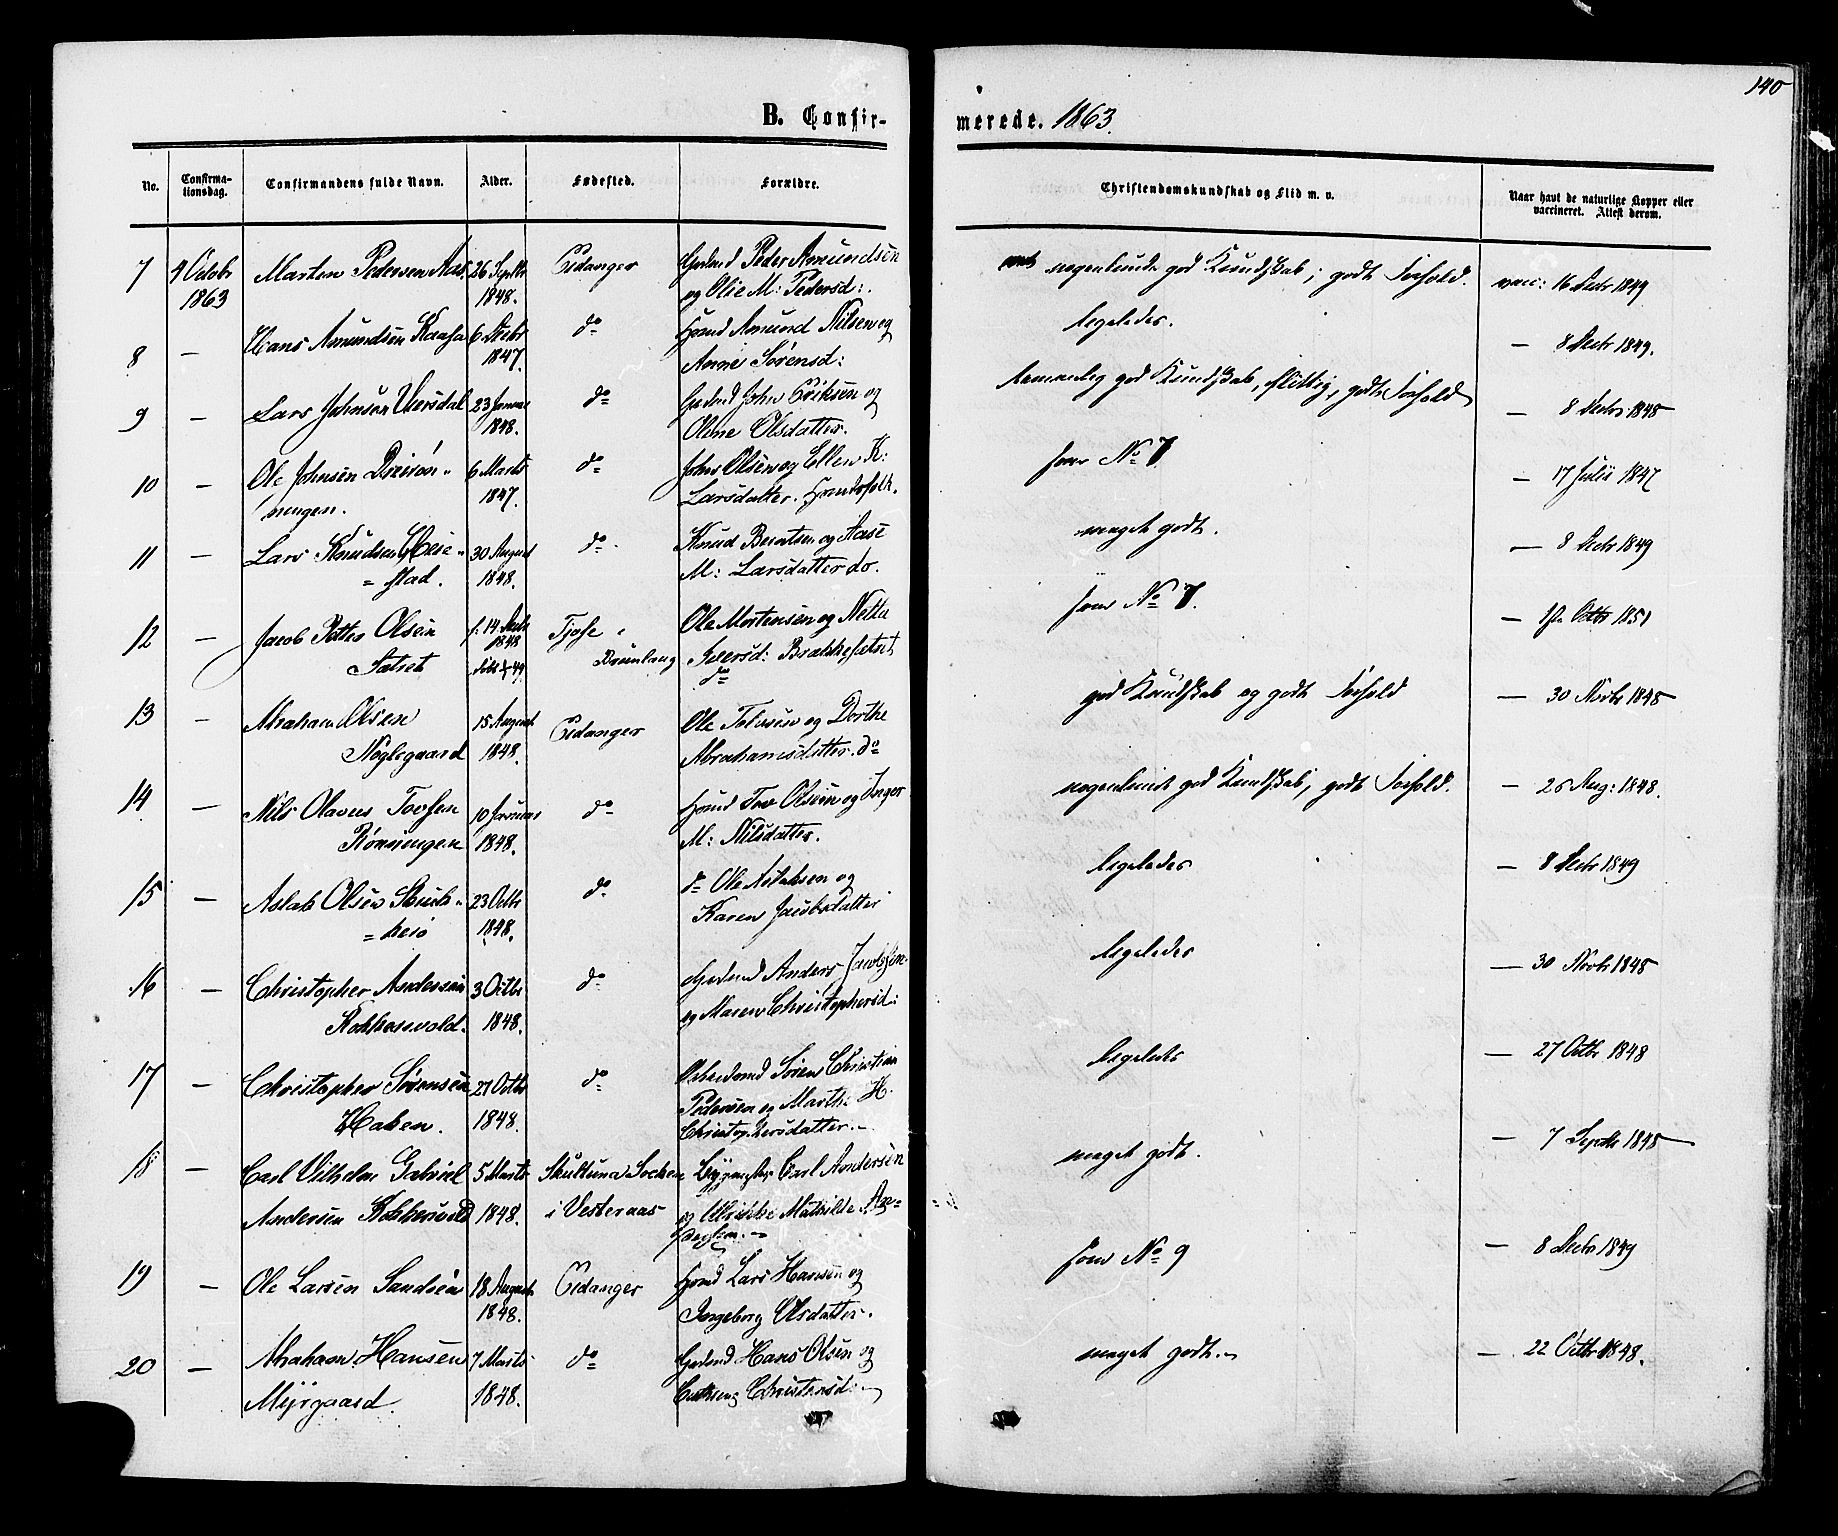 140
B. Confir-
merede. 1863.
No.
Confirma-
tionsdag.
Confirmandens fulde Navn.
Alder.
Fødested.
Forældre.
Christendomskundskab og Flid m. v.
Naar havt de naturlige Kopper eller
vaccineret. Attest derom.
7 4 Octobr Marten Pedersen Aas 26 Septbr Eidanger Gaardmd Peder Amundsen nogenlunde god Kundskab; godt Forhold. vacc: 16 Decbr 1849
1863 1848. og Olie M: Pedersd:
8 — Hans Amundsen Kaasa 6 Decbr do Hvermd Amund Nilsen og ligeledes. — 8 Decbr 1849.
1847. Anne Sørensd:
9 — Lars Johnsen Versdal 23 Januar do Gaardmd John Eriksen og temmelig god Kundskab, flittig, godt Forhold — 8 Decbr 1848
1848. Olene Olsdatter.
10 — Ole Johnsen 6 Marts do John Olsen og Ellen K: som No 7 — 17 Julii 1847
ningen. 1847. Larsdatter.
11 — Lars Knudsen Heie- 30 August do Knud Berntsen og Aase meget godt. — 8 Decbr 1849
= stad. 1848. M: Larsdatter do.
12 — Jacob Petter Olsen f: 14 Tjose i Ole Mortensen og Netta som No 7. — Octbr 1851
Sætret 1848 Brunlaug Iversd: Brækkesætret
do
13 — Abraham Olsen 15 August Eidanger Ole Tovsen og Dorthe god Kundskab og godt Forhold — 30 Novbr 1848
Nøglegaard 1848. Abrahamsdatter. do
14 — Nils Olaves Tovsen 10 Januar do Tov Olsen og Inger nogenlunde god Kundskab, godt Forhold. — 26 Aug: 1848.
Rønningen 1848. M: Nilsdatter.
15 — Aslak Olsen 23 Octbr do do Ole Aslaksen og ligeledes — 8 Decbr 1849
= heia 1848. Karen Jacobsdatter
16 — Christopher Andersen 3 Octbr do Gaardmd Anders Jacobsen ligeledes — 30 Novbr 1848
Kokkersvold. 1848. og Maren Christophersd:
17 — Christopher Sørensen 27 Octbr do Søren Christian ligeledes — 27 Octbr 1848
Haken. 1848. Pedersen og Marthe H.
Christophersdatter.
18 — Carl Vilhelm Gabriel 5 Marts Skultuna Socken Carl Andersen meget godt. — 7 Septbr 1848
Andersen Kokkersvold 1848. i Vesteraas og Ulrikke Mathilde
19 — Ole Larsen Sandøen 18 August Eidanger Lars Hansen og som No 9 — 8 Decbr 1849
1848. Ingeborg Olsdatter.
20 — Abraham Hansen 7 Marts do Gaardmd Hans Olsen og meget godt. — 22 Octbr 1848.
Myrgaard 1848. Christensd: